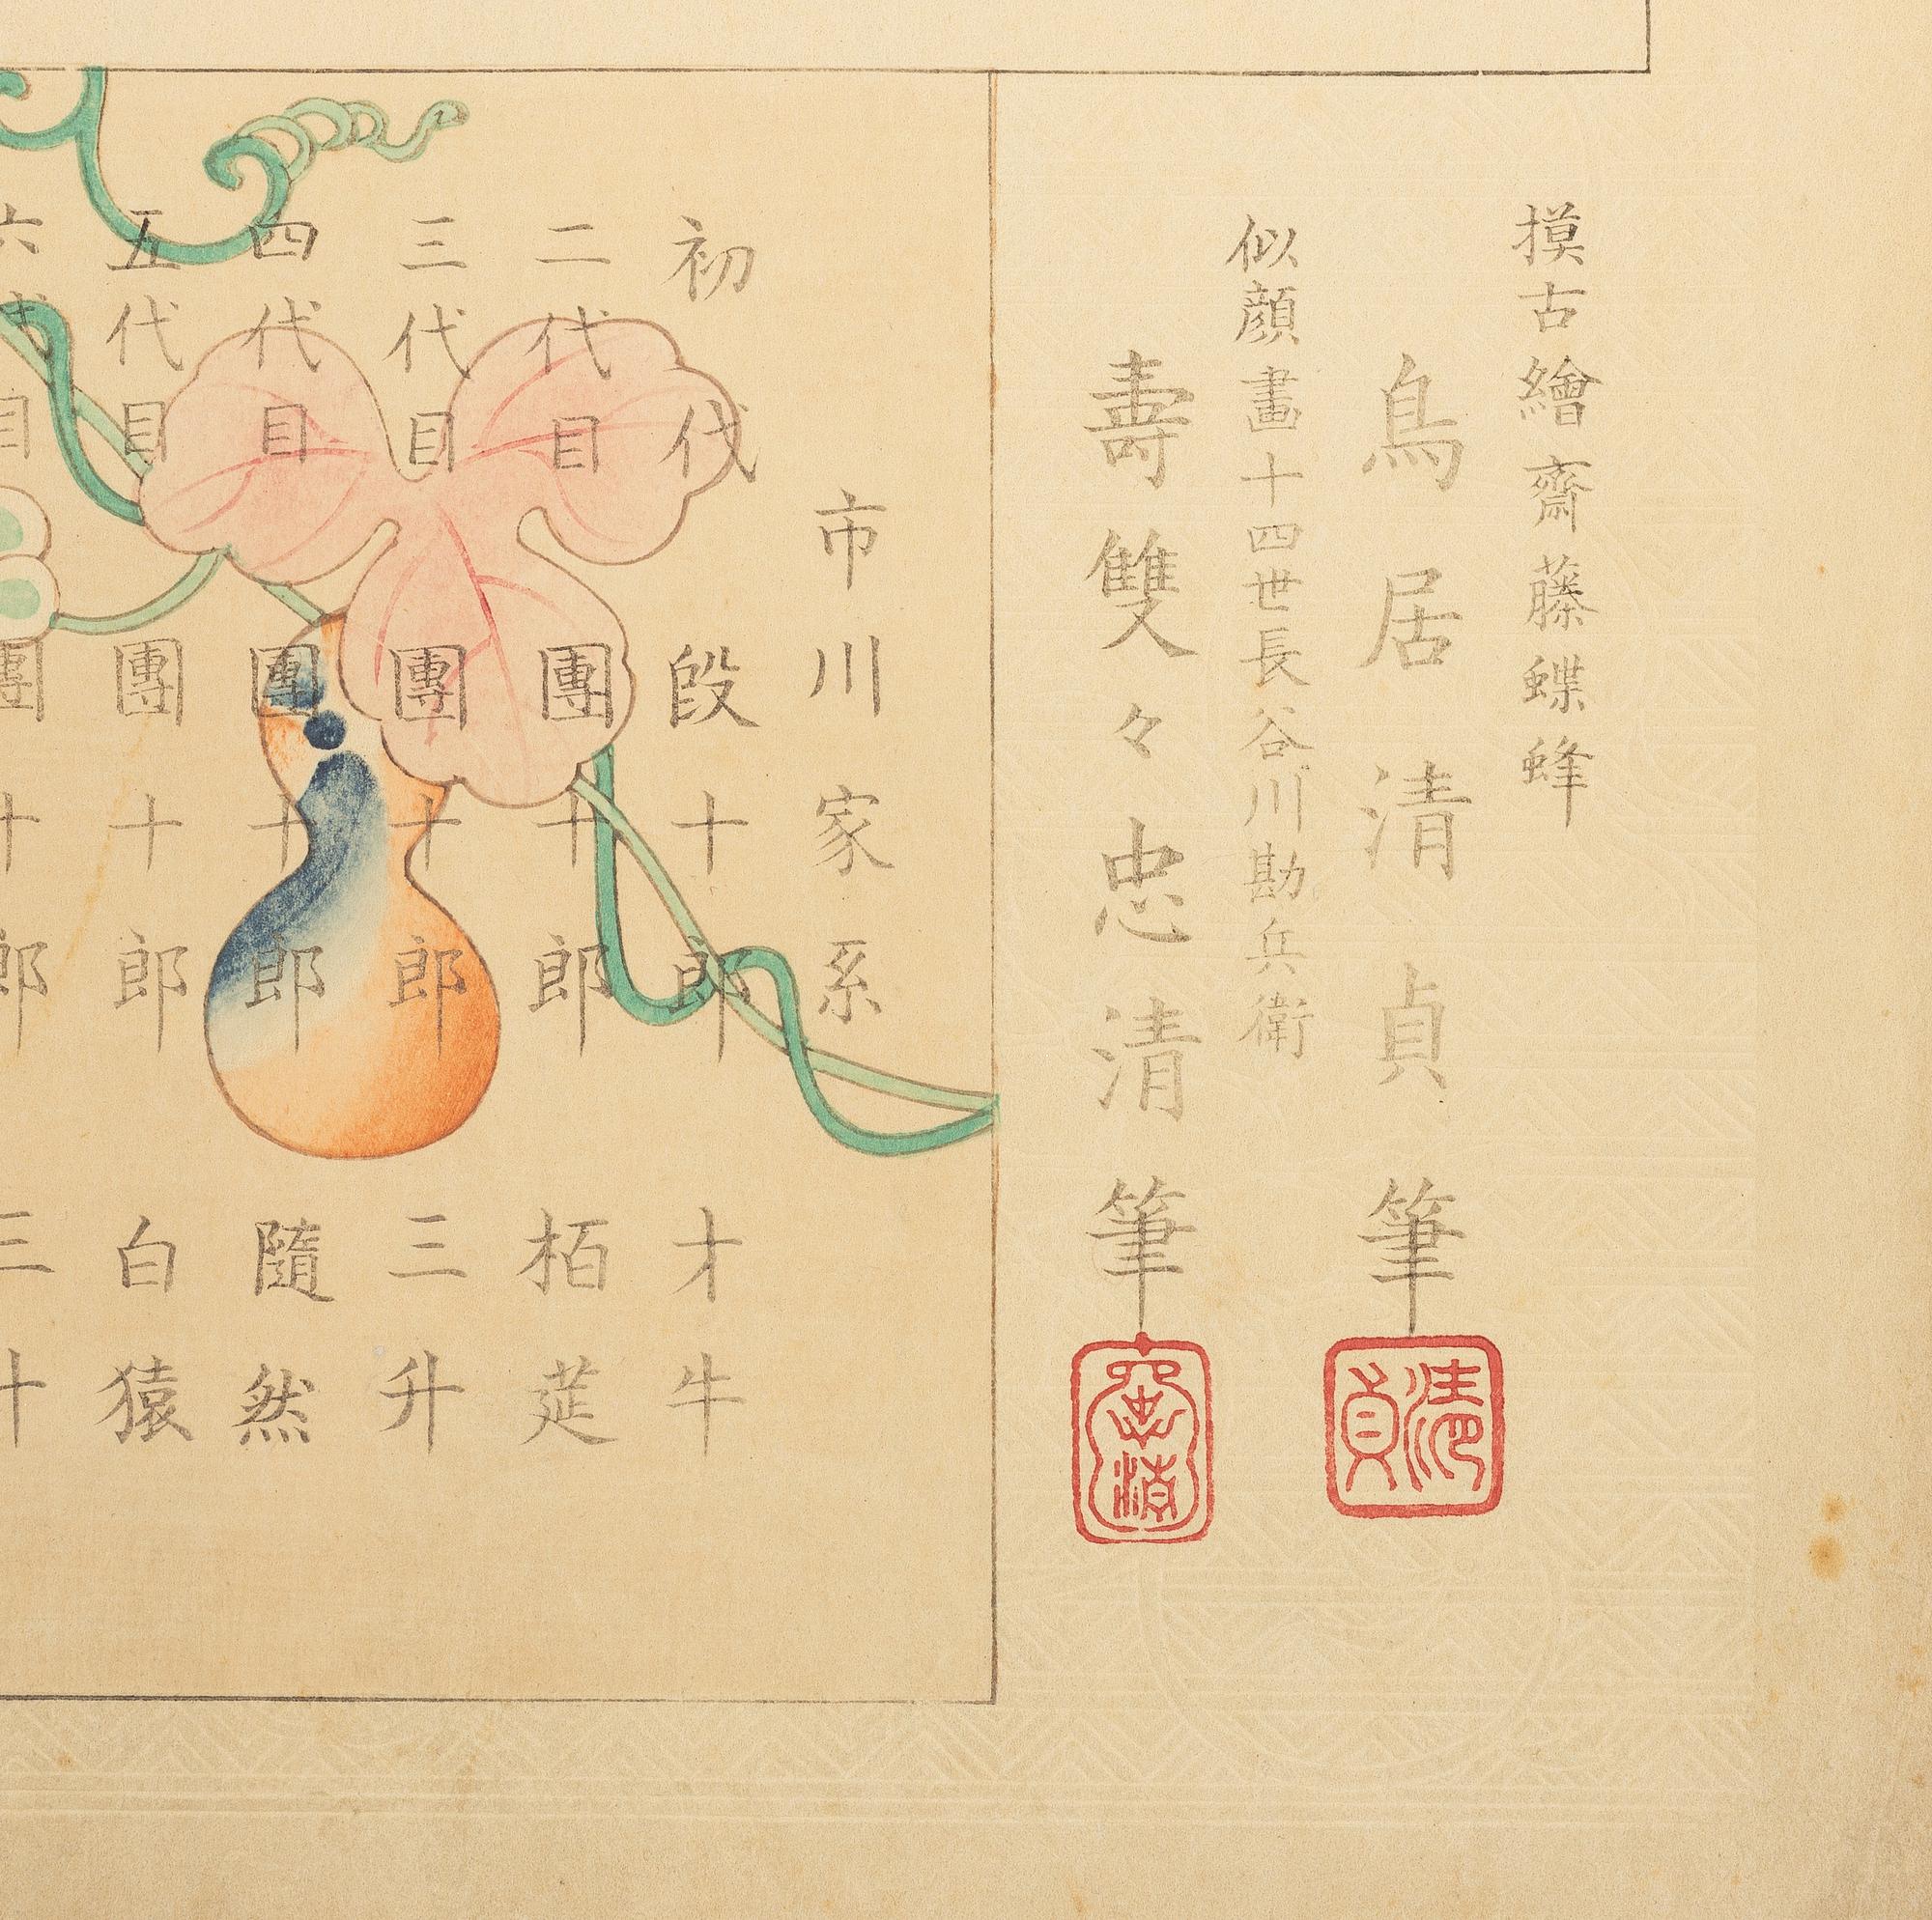 摸古繪齋藤蝶蜂
鳥居清貞筆
清貞
似顔畫十四世長谷川勘兵衛
壽雙々忠清筆
忠清
市川家系
初代 段十郎 才牛
二代目 團十郎 栢莚
三代目 團十郎 三升
四代目 團十郎 隨然
五代目 團十郎 白猿
六代目 團十郎 三升